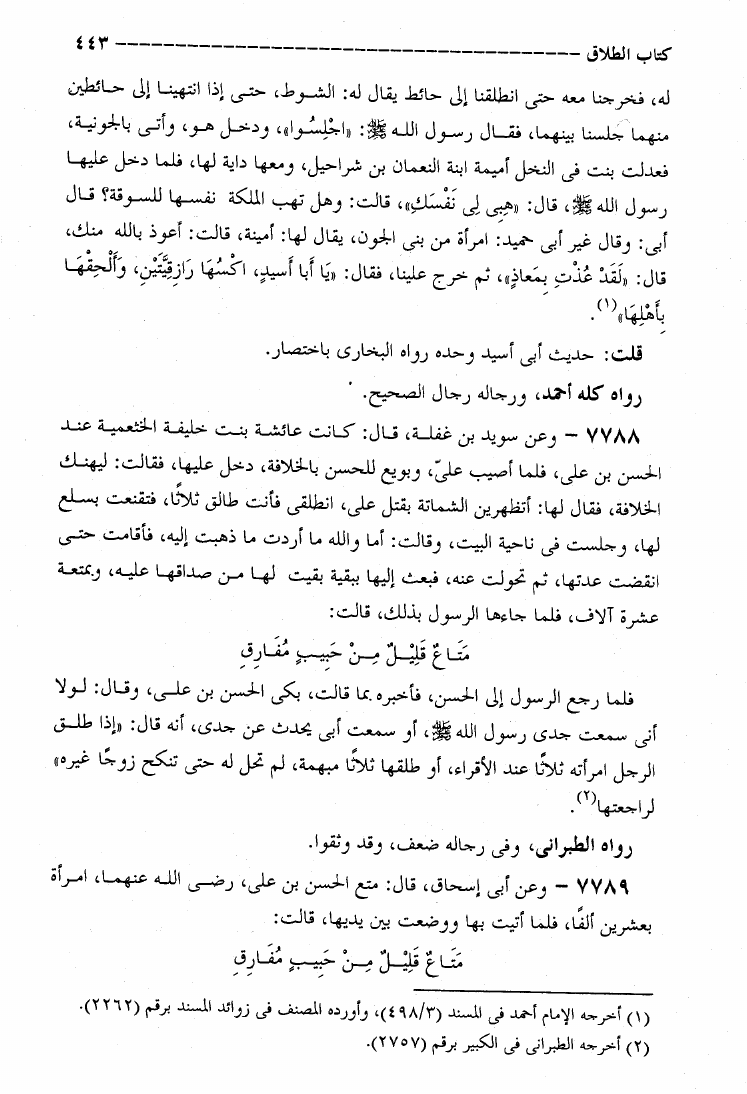 كتاب الطلاق ــــــــــــــــــــــــــــــــــــــــــــــــــ ٤٤٣
له، فخرجنا معه حتى انطلقنا إلى حائط يقال له: الشوط، حتى إذا انتهينا إلى حائطين
منهما جلسنا بينهما، فقال رسول الله ﷺ: «اجْلِسُوا»، ودخل هو، وأتى بالجونية،
فعدلت بنت فى النخل أميمة ابنة النعمان بن شراحيل، ومعها داية لها، فلما دخل عليها
رسول الله ﷺ، قال: «هِبِى لِى نَفْسَكِ»، قالت: وهل تهب الملكة نفسها للسوقة؟ قال
أبى: وقال غير أبى حميد: امرأة من بنى الجون، يقال لها: أمينة، قالت: أعوذ بالله منك،
قال: «لَقَدْ عُذْتِ بِمَعاذٍ»، ثم خرج علينا، فقال: «يَا أبا أسيدٍ، اكْسُهَا رَازِقِيَّتَيْنِ، وَأَلْحِقْهَا
بِأَهْلِهَا»(١).
قلت: حديث أبى أسيد وحده رواه البخارى باختصار.
رواه كله أحمد، ورجاله رجال الصحيح.
٧٧٨٨ – وعن سويد بن غفلة، قال: كانت عائشة بنت خليفة الخثعمية عند
الحسن بن على، فلما أصيب علىّ، وبويع للحسن بالخلافة، دخل عليها، فقالت: ليهنك
الخلافة، فقال لها: أتظهرين الشماتة بقتل على، انطلقى فأنت طالق ثلاثًا، فتقنعت بسلع
لها، وجلست فى ناحية البيت، وقالت: أما والله ما أردت ما ذهبت إليه، فأقامت حتى
انقضت عدتها، ثم تحولت عنه، فبعث إليها ببقية بقيت لها من صداقها عليه، وبمتعة
عشرة آلاف، فلما جاءها الرسول بذلك، قالت:
مَتَاعٌ قَلِيْلٌ مِنْ حَبِيبٍ مُفَارِقِ
فلما رجع الرسول إلى الحسن، فأخبره بما قالت، بكى الحسن بن على، وقال: لولا
أنى سمعت جدى رسول الله ﷺ، أو سمعت أبى يحدث عن جدى، أنه قال: «إذا طلق
الرجل امرأته ثلاثًا عند الأقراء، أو طلقها ثلاثًا مبهمة، لم تحل له حتى تنكح زوجًا غيره»
لراجعتها(٢).
رواه الطبرانى، وفى رجاله ضعف، وقد وثقوا.
٧٧٨٩ – وعن أبى إسحاق، قال: متع الحسن بن على، رضى الله عنهما، امرأة
بعشرين ألفًا، فلما أتيت بها ووضعت بين يديها، قالت:
مَتَاعٌ قَلِيْلٌ مِنْ حَبِيبٍ مُفَارِقِ
(١) أخرجه الإمام أحمد فى المسند (٤٩٨/٣)، وأورده المصنف فى زوائد المسند برقم (٢٢٦٢).
(٢) أخرجه الطبرانى فى الكبير برقم (٢٧٥٧).